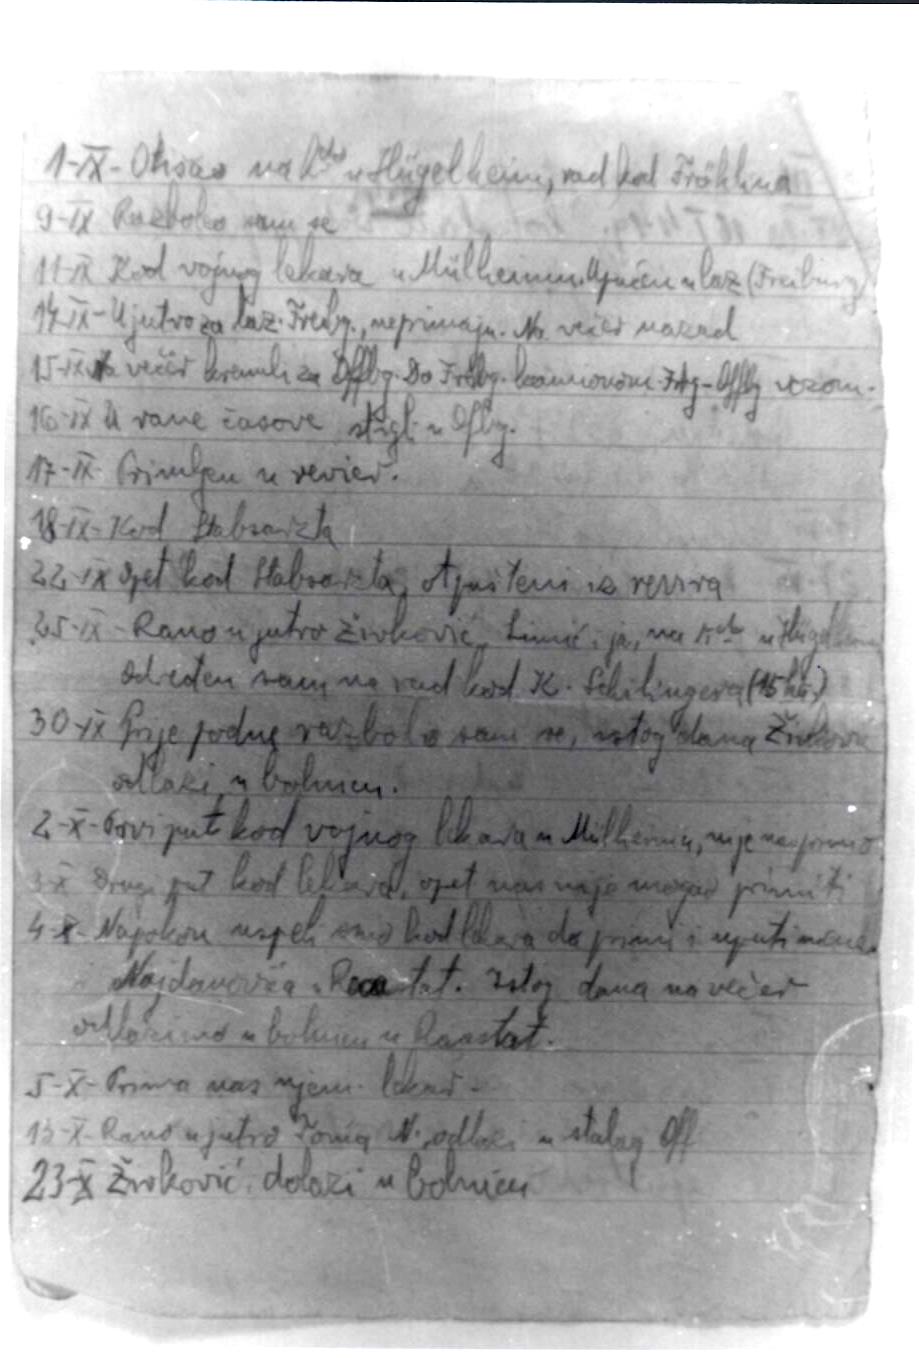 1-IX- Otišao na Kdo u Hügelheim, rad kod Fröhlina
9-IX Razbolo sam se
11-IX Kod vojnog lekara u Mülheimu. Upućen u laz (Freiburg)
14-IX- Ujutro za laz. Freibg., neprimaju. Na večer nazad
15-IX Na večer krenuli za Offbg. Do Frbg. kamionom. Frbg-Offbg vozom.
16-IX U rane časove stigli u Ofbg.
17-IX- Primljen u revier.
18-IX- Kod Stabsarzta
22-IX Opet kod Stabsarzta, otpušteni iz revira
25-IX- Rano ujutro Živković, Simić i ja, na Kdo u Hügelheim
Određen sam na rad kod K. Schilingera (15 )
30-IX Prije podne razbolo sam se, istog dana Živković
odlazi u bolnicu.
2-X- Prvi put kod vojnog lekara u Mülheimu, nije nas primio
3-X Drugi put kod lekara, opet nas nije mogao primiti
4-X- Napokon uspeli smo kod lekara da primi i uputi mene
i Najdanovića u Raastat. Istog dana na večer
odlazimo u bolnicu u Raastat.
5-X- Prima nas njem. lekar.
13-X- Rano ujutro Toma N. odlazi u stalag Off
23-X Živković dolazi u bolnicu